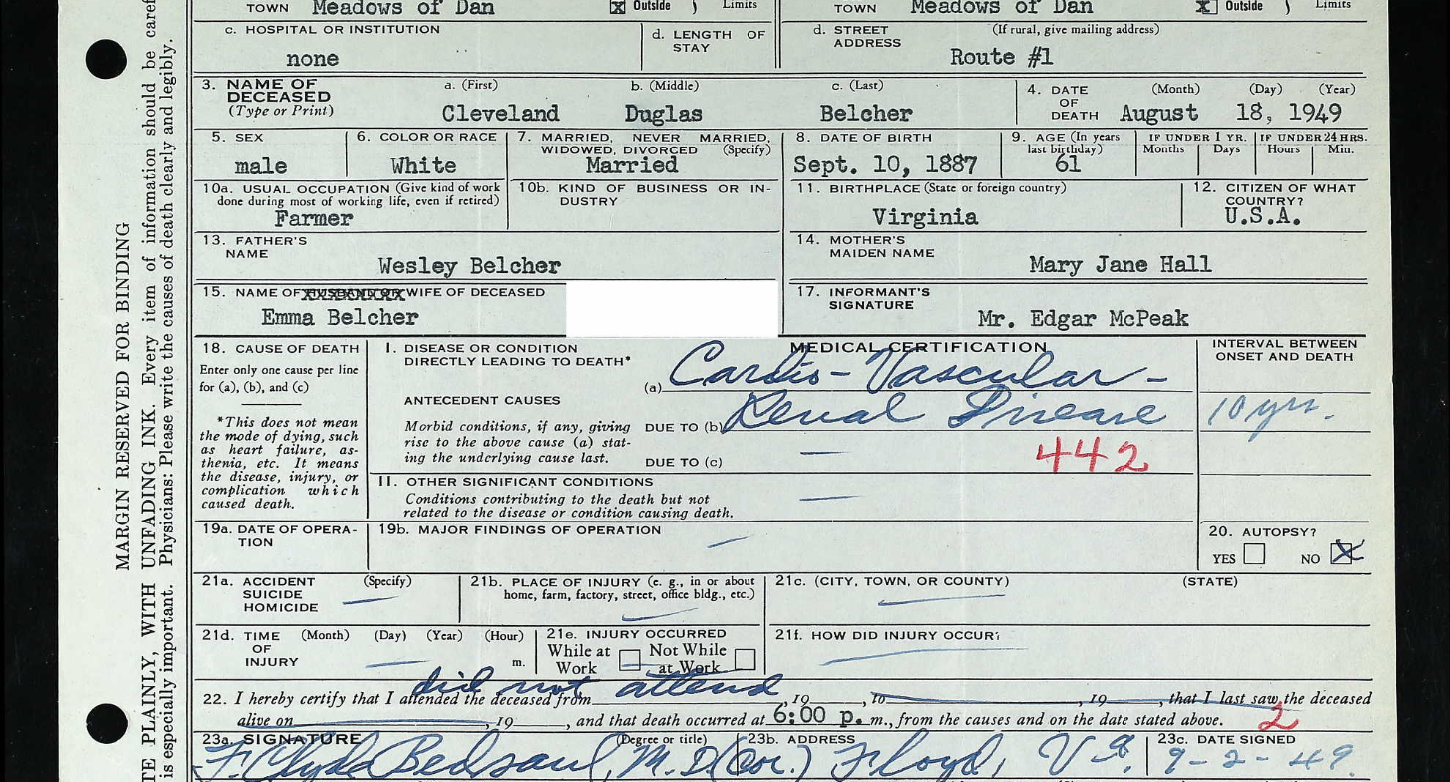 TOWN Meadows of Dan ☒ Outside ) Limits TOWN Meadows of Dan ☒ Outside ) Limits
c. HOSPITAL OR INSTITUTION d. LENGTH OF STAY d. STREET ADDRESS (If rural, give mailing address)
none Route #1
3. NAME OF DECEASED (Type or Print) a. (First) b. (Middle) c. (Last) 4. DATE OF DEATH (Month) (Day) (Year)
Cleveland Duglas Belcher August 18, 1949
5. SEX 6. COLOR OR RACE 7. MARRIED, NEVER MARRIED, WIDOWED, DIVORCED (Specify) 8. DATE OF BIRTH 9. AGE (In years last birthday) IF UNDER 1 YR. Months Days IF UNDER 24 HRS. Hours Min.
male White Married Sept. 10, 1887 61
10a. USUAL OCCUPATION (Give kind of work done during most of working life, even if retired) 10b. KIND OF BUSINESS OR INDUSTRY 11. BIRTHPLACE (State or foreign country) 12. CITIZEN OF WHAT COUNTRY?
Farmer Virginia U.S.A.
13. FATHER'S NAME 14. MOTHER'S MAIDEN NAME
Wesley Belcher Mary Jane Hall
15. NAME OF HUSBAND OR WIFE OF DECEASED 17. INFORMANT'S SIGNATURE
Emma Belcher Mr. Edgar McPeak
18. CAUSE OF DEATH
Enter only one cause per line
for (a), (b), and (c)
*This does not mean
the mode of dying, such
as heart failure, as-
thenia, etc. It means
the disease, injury, or
complication which
caused death.
MEDICAL CERTIFICATION
INTERVAL BETWEEN
ONSET AND DEATH
I. DISEASE OR CONDITION
DIRECTLY LEADING TO DEATH* (a) Cardio-Vascular-
ANTECEDENT CAUSES
Morbid conditions, if any, giving DUE TO (b) Renal Disease 10 yrs.
rise to the above cause (a) stat-
ing the underlying cause last. DUE TO (c) — 442
II. OTHER SIGNIFICANT CONDITIONS
Conditions contributing to the death but not —
related to the disease or condition causing death.
19a. DATE OF OPERA-
TION
19b. MAJOR FINDINGS OF OPERATION —
20. AUTOPSY?
YES ☐ NO ☒
21a. ACCIDENT (Specify)
SUICIDE —
HOMICIDE
21b. PLACE OF INJURY (e. g., in or about
home, farm, factory, street, office bldg., etc.)
21c. (CITY, TOWN, OR COUNTY) (STATE)
21d. TIME (Month) (Day) (Year) (Hour)
OF
INJURY — m.
21e. INJURY OCCURRED
While at ☐ Not While ☐
Work at Work
21f. HOW DID INJURY OCCUR?
did not attend
22. I hereby certify that I attended the deceased from , 19 , to , 19 , that I last saw the deceased
alive on , 19 , and that death occurred at 6:00 p. m., from the causes and on the date stated above. 2
23a. SIGNATURE (Degree or title) 23b. ADDRESS 23c. DATE SIGNED
F. Clyde Bedsaul, M.D. (Cor.) Floyd, Va. 9-2-49.
MARGIN RESERVED FOR BINDING
TE PLAINLY, WITH UNFADING INK. Every item of information should be caref
is especially important. Physicians: Please write the causes of death clearly and legibly.